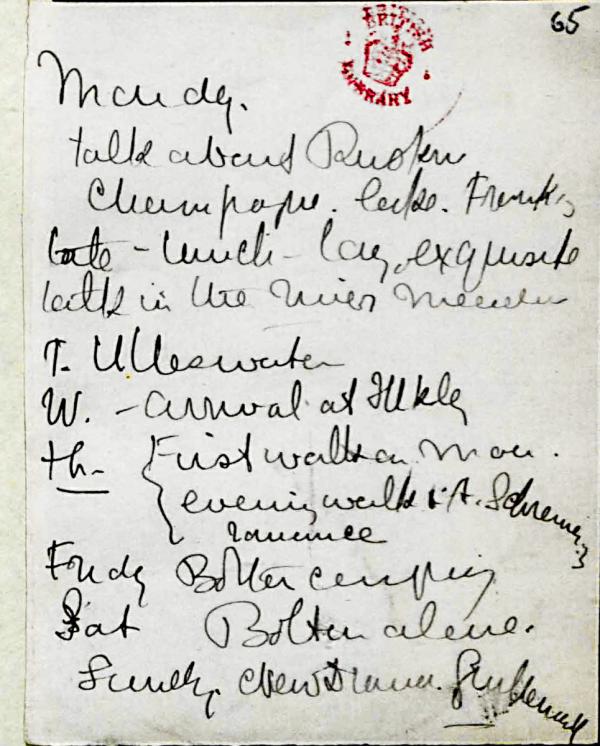 65
BRITISH
LIBRARY
Monday.
talk about Ruskin
Champagne. lake. Frank's
late - lunch - lazy, exquisite
talk in the
T. Ulleswater
W. - arrival at Ilkley
th- First walk on moor.
evening walk
romance
Friday Bolton
Sat Bolton alone.
Sunday. New Drama.